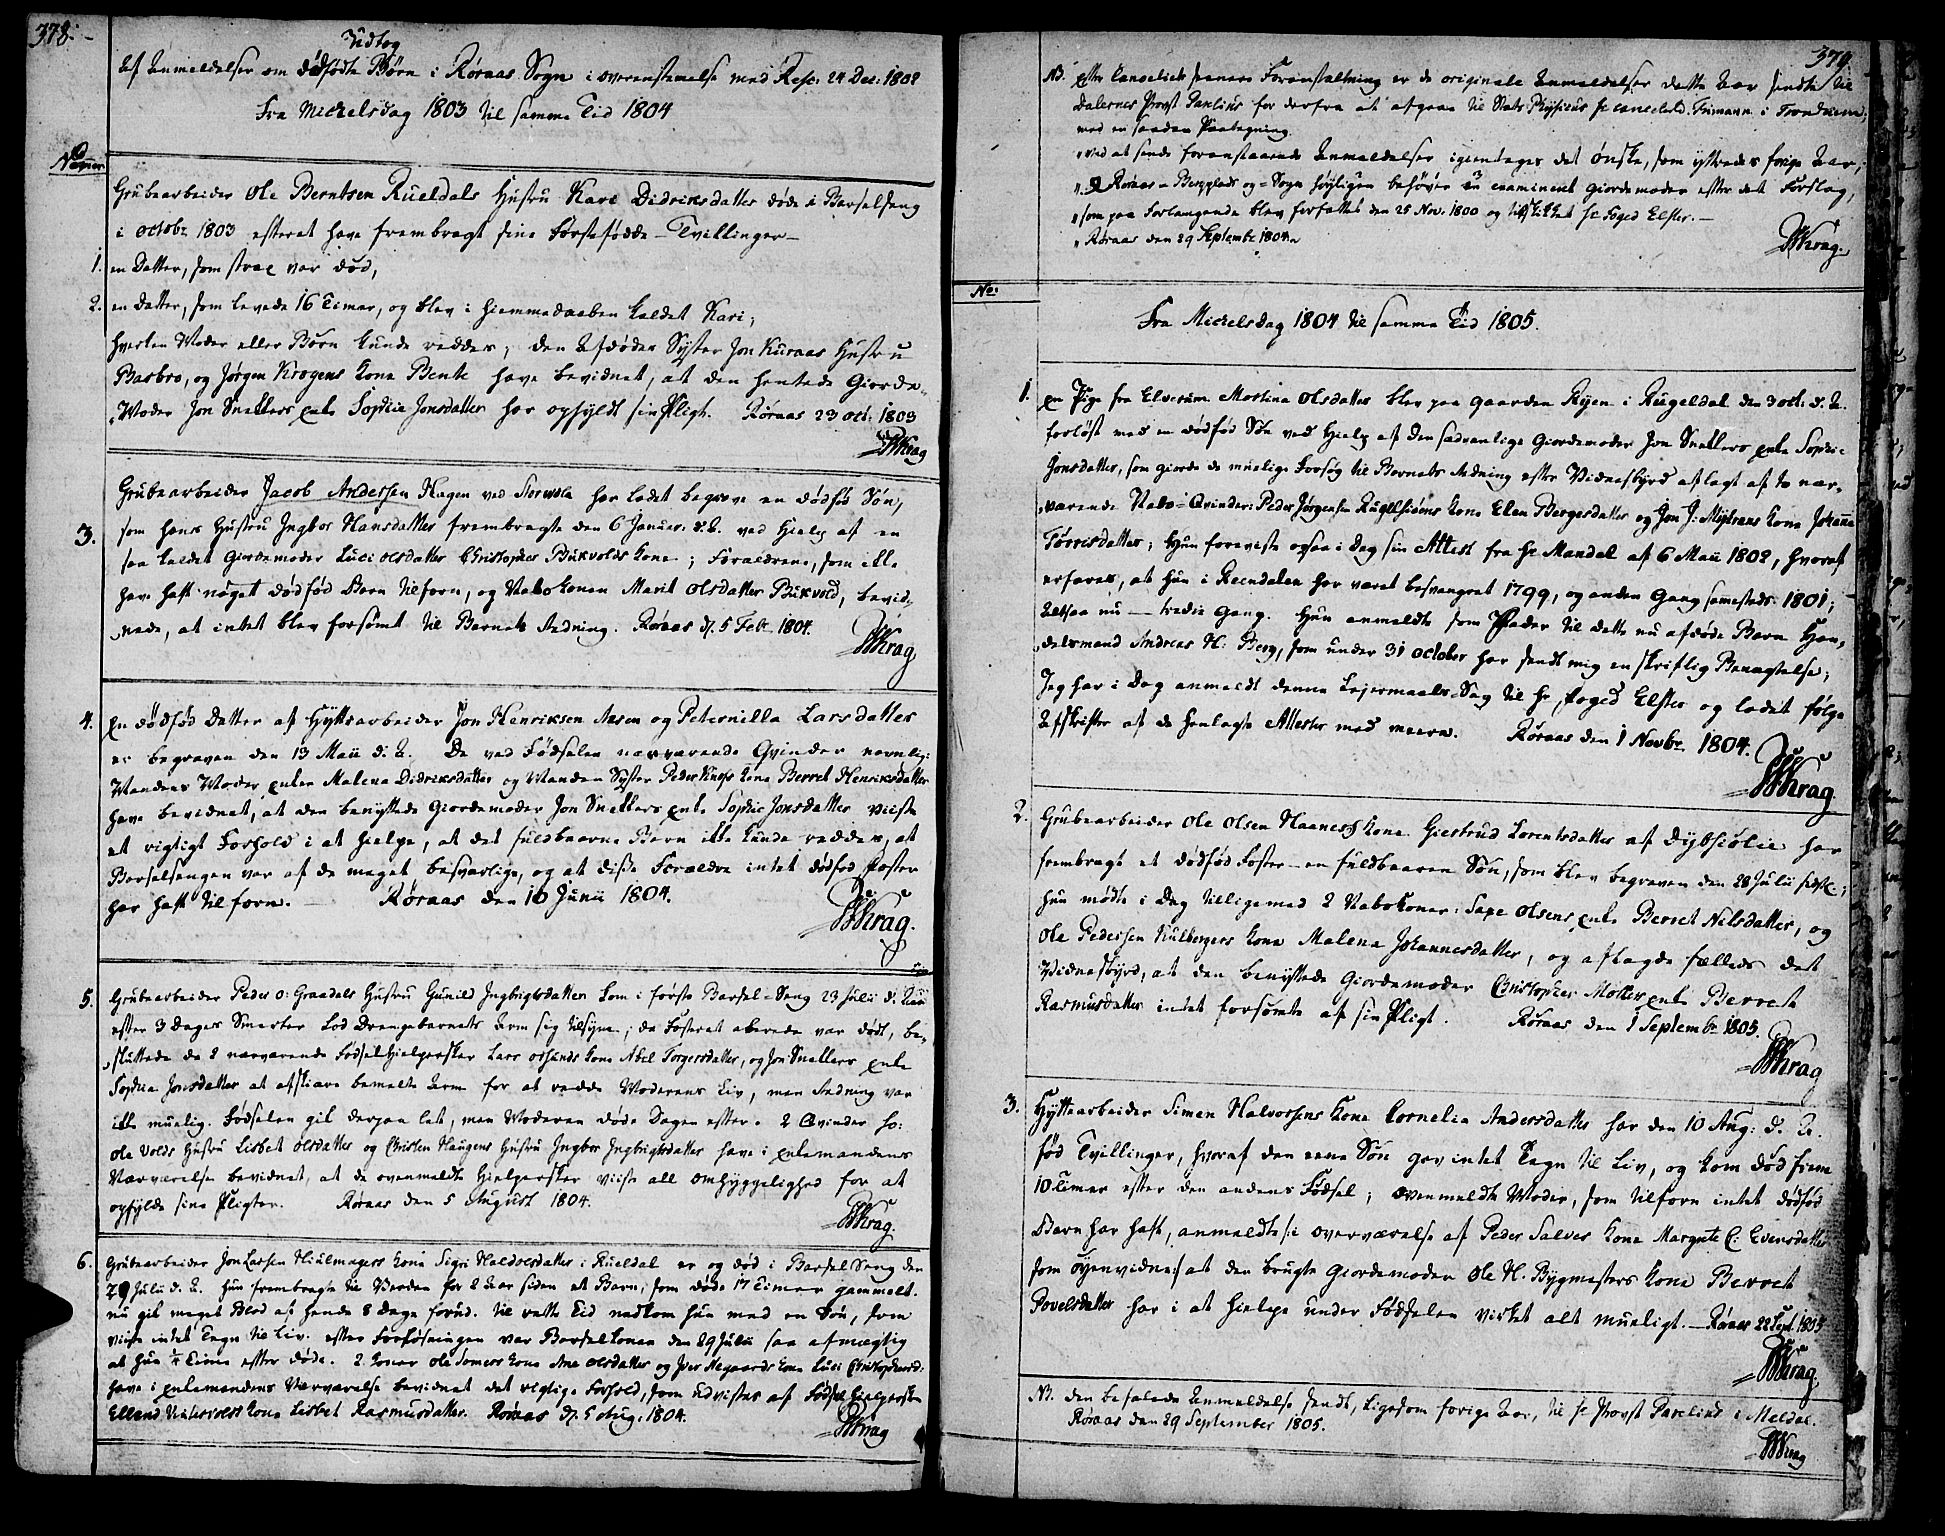 378.
Udtog
af Anmeldelser om dødfødte Børn i Røraas Sogn i overenstemelse med Resc: 24 Dec: 1802
Fra Michelsdag 1803 til samme Tid 1804
Nummer
Grubearbeider Ole Berntsen Rueldals Hustru Kari Didriksdatter døde i Barselseng
i octobr 1803 efterat have frembragt sine førstefødde - Tvillinger -
1. en Datter, som strax var død,
2. en Datter, som levede 16 Timer, og blev i hiemmedaaben kaldet Kari;
hverken Moder eller Børn kunde reddes; den Afdødes Syster Jon Kuraas Hustru
Barbro, og Jørgen Krogens kone Bente have bevidnet, at den hentede Giorde-
Moder Jon Snekkers enke Sophie Jonsdatter har opfyldt sin Pligt. Røraas 23 oct. 1803
Krag
Grubearbeider Jacob Andersen Hagen ved Storvola har ladet begrave en dødfød Søn,
3. som hans Hustru Ingbor Hansdatter frembragte den 6 Januar: d. A. ved Hielp af en
saa kaldet Giordemoder Luci Olsdatter Christopher Bukvolds kone; Foraeldrene, som ikke
have haft noget dødfød Barn tilforn, og Nabokonen Marit Olsdatter Bukvold, bevid-
nede, at intet blev forsømt til Barnets Redning. Røraas d. 5 Feb. 1804.
Krag
4. En dødfød Datter af Hyttearbeider Jon Henriksen Aasen og Peternilla Larsdatter
er begraven den 13 Maii d: A. De ved Fødselen nærværende Qvinder navnlig:
Mandens Moder, enken Malena Didriksdatter og Mandens Syster Peder Knephs kone Berret Henriksdatter
have bevidnet, at den benyttede Giordemoder Jon Snekkers enke Sophie Jonsdatter viiste
et rigtigt Forhold i at hielpe, at det fuldbaarne Barn ikke kunde reddes, at
Barselsengen var af de meget besværlige, og at disse Forældre intet dødfød Foster
har haft tilforn. - Røraas den 16 Junii 1804.
Krag.
5. Grubearbeider Peder O: Graadals Hustru Gunild Ingbrigtsdatter kom i første Barsel-Seng 23 Julii d: Aar
efter 3 Dages Smerter lod Drengebarnets Arm sig tilsyne; da Fosteret allerede var dødt, be-
sluttede de 2 nærværende Fødselhielpersker Lars Osunds kone Abel Torgersdatter, og Jon Snekkers enke
Sophia Jonsdatter at afskiære bemelte Arm for at redde Moderens Liv, men Redning var
ikke muelig. Fødselen gik derpaa let, men Moderen døde Dagen efter. 2 Qvinder so:
Ole Volds Hustru Lisbet Olsdatter og Christen Haugens Hustru Ingbor Ingbrigtsdatter have i enkemandens
Nærværelse bevidnet, at de ovenmeldte Hielpersker viiste all omhyggelighed for at
opfylde sine Pligter. Røraas den 5 August 1804.
Krag.
6. Grubearbeider Jon Larsen Hiulmagers kone Sigri Haldorsdatter i Rueldal er og død i Barsel Seng den
29 Julii d. A. hun frembragte til Verden for 2 Aar siden et Barn, som døde 17 Timer gammelt.
nu gik meget Blod af hende 8 Dage forud. til rette Tid nedkom hun med en Søn, som
viiste intet Tegn til Liv. efter Forløsningen var Barselkonen den 29 Julii saa afmægtig
at hun 1/4 Time efter døde. 2 koner Ole Somers kone Ane Olsdatter og Iver Aegaards kone Luci Christophersd:
have i enkemandens Nærværelse bevidnet det rigtige Forhold, som udvistes af Fødsel Hielpersken
Ellend kone Lisbet Rasmusdatter. Røraas d. 5 Aug. 1804.
Krag
379.
NB. efter Cancelieh Foranstaltning er de originale Anmeldelser dette Aar sendte til
Dalernes Provst Parelius for derfra at afgaae til Stats Physicus hr Cancelird. Frimann i Trondhiem.
med en saadan Paategning.
"ved at sende foranstaaende Anmeldelser igientages det Ønske, som yttredes forige Aar,
"at Røraas-Bergstads og -Sogn høyligen behøver en examineret Giordemoder efter det Forslag,
"som paa Forlangende blev forfattet den 25 Nov. 1800 og tilstillet hr Foged Elster. -
"Røraas den 29 Septembr 1804."
Krag.
No:
Fra Michelsdag 1804 til samme Tid 1805.
1. En Pige fra Elverum Martina Olsdatter blev paa gaarden Ryen i Rugeldal den 3 oct: d. A.
forløst med en dødfød Søn ved Hielp af den sædvanlige Giordemoder Jon Snekkers enke Sophie
Jonsdatter, som giorde de muelige Forsøg til Barnets Redning efter Vidnesbyrd aflagt af to nær-
værende Nabo-Qvinder: Peder Jørgensen Rugelsiøens kone Elen Bergesdatter og Jon J: Myhrans kone Johanna
Tørrisdatter; Hun foreviiste ogsaa i Dag sin Attest fra hr Mandal af 6 Maii 1802, hvoraf
erfares, at hun i Reendalen har været besvangret 1799, og anden Gang samesteds 1801;
Altsaa nu - tredie Gang. Hun anmeldte som Fader til dette nu afdøde Barn Han-
delsmand Andreas H: Berg, som under 31 october har sendt mig en skriftlig Benægtelse;
Jeg har i Dag anmeldt denne Lejermaals-Sag til hr Foged Elster og ladet følge
Afskrifter af de henlagte Attester med meere. Røraas den 1 Novbr. 1804.
Krag
2. Grubearbeider Ole Olsen Haanes's kone Giertrud Lorentsdatter af Dybsiølie har
frembragt et dødfød Foster - en fuldbaaren Søn, som blev begraven den 28 Julii sidstl.;
hun mødte i Dag tilligemed 2 Nabokoner: Saxe Olsens enke Berret Nilsdatter, og
Ole Pedersen Kulbergers kone Malena Johannesdatter, og aflagde fælleds det
Vidnesbyrd, at den benyttede Giordemoder Christopher Mølkers enke Berret
Rasmusdatter intet forsømte af sin Pligt. Røraas den 1 Septembr 1805.
Krag
3. Hyttearbeider Simen Halvorsens kone Cornelia Andersdatter har den 10 Aug: d. A.
fød Tvillinger, hvoraf den eene Søn gav intet Tegn til Liv, og kom død frem
10 Timer efter den andens Fødsel; ovenmeldte Moder, som tilforn intet dødfød
Barn har haft, anmeldtes i overværelse af Peder Salves kone Margrete C: Evensdatter
som øyenvidne: at den brugte Giordemoder Ole H. Bygmesters kone Berret
Povelsdatter har i at hielpe under Fødselen virket alt mueligt. - Røraas 22 Sept. 1805
Krag.
NB. den befalede Anmeldelse sendt, ligesom forige Aar, til hr Provst Parelius i Meldal.
Røraas den 29 September 1805.
Krag